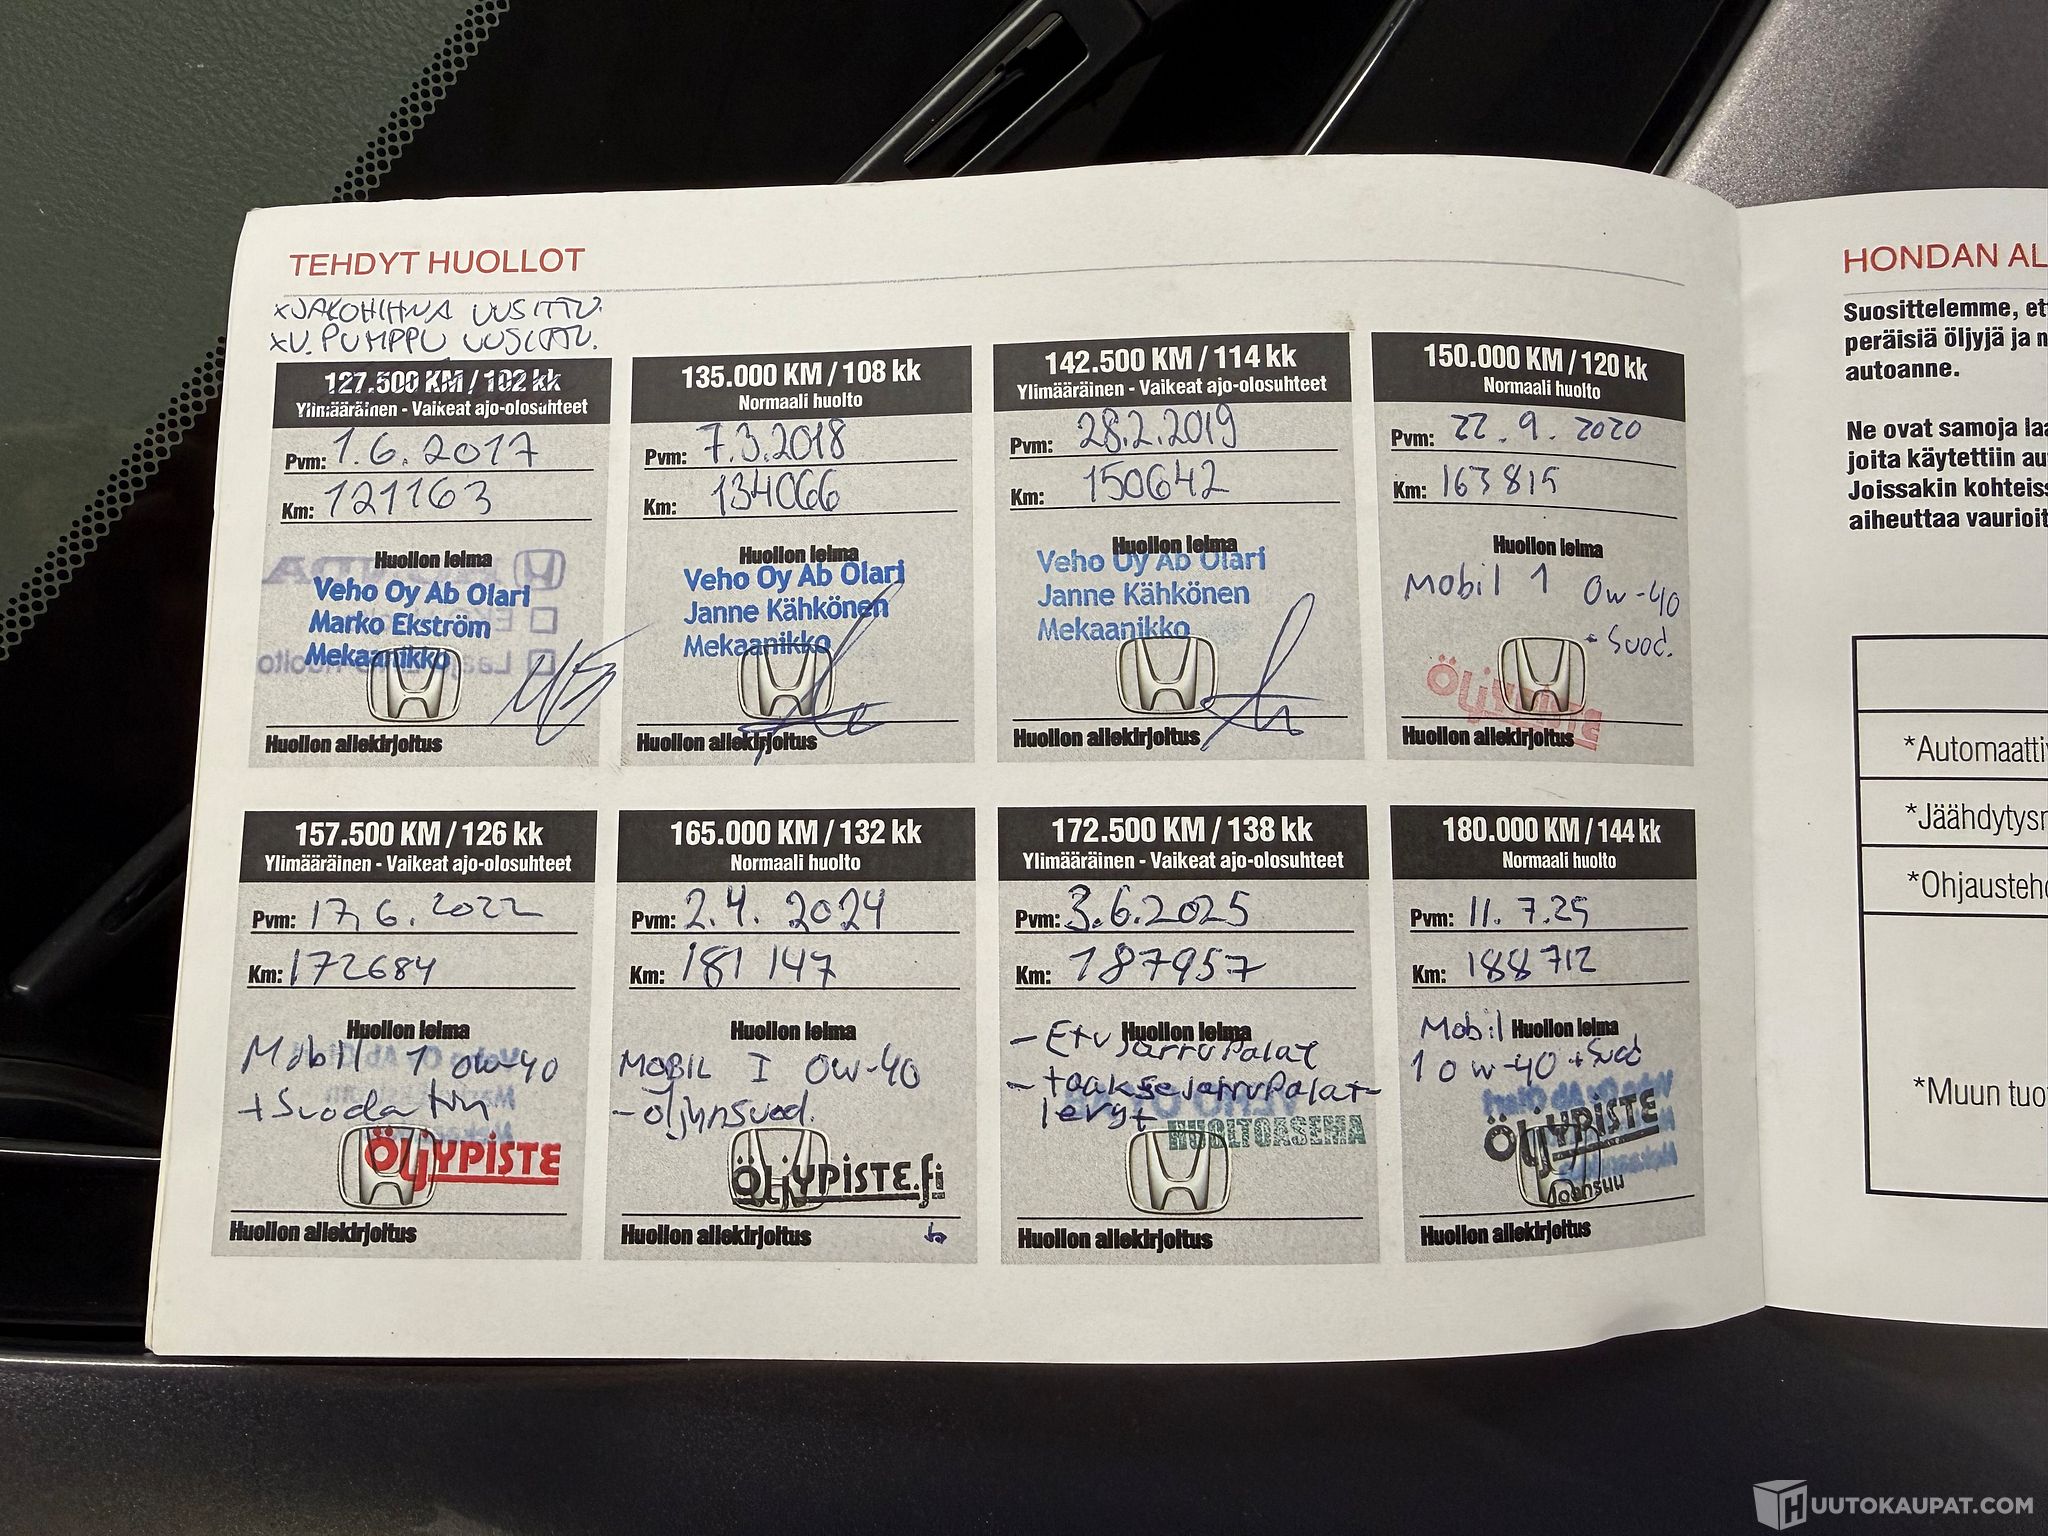 TEHDYT HUOLLOT
xJAKOHIHNA UUSITTU.
xV. PUMPPU UUSITTU.
127.500 KM / 102 kk
Ylimääräinen - Vaikeat ajo-olosuhteet
Pvm: 1.6.2017
Km: 121163
Huollon leima
Veho Oy Ab Olari
Marko Ekström
Mekaanikko
Huollon allekirjoitus
135.000 KM / 108 kk
Normaali huolto
Pvm: 7.3.2018
Km: 134066
Huollon leima
Veho Oy Ab Olari
Janne Kähkönen
Mekaanikko
Huollon allekirjoitus
142.500 KM / 114 kk
Ylimääräinen - Vaikeat ajo-olosuhteet
Pvm: 28.2.2019
Km: 150642
Huollon leima
Veho Oy Ab Olari
Janne Kähkönen
Mekaanikko
Huollon allekirjoitus
150.000 KM / 120 kk
Normaali huolto
Pvm: 22.9.2020
Km: 163815
Huollon leima
Mobil 1 0w-40
- Suod.
ÖLJYPISTE
Huollon allekirjoitus
157.500 KM / 126 kk
Ylimääräinen - Vaikeat ajo-olosuhteet
Pvm: 17.6.2022
Km: 172684
Huollon leima
Mobil 1 0w-40
+Suodatin
ÖLJYPISTE
Huollon allekirjoitus
165.000 KM / 132 kk
Normaali huolto
Pvm: 2.4.2024
Km: 181 147
Huollon leima
MOBIL I 0W-40
-öljynsuod.
ÖLJYPISTE.fi
Huollon allekirjoitus
172.500 KM / 138 kk
Ylimääräinen - Vaikeat ajo-olosuhteet
Pvm: 3.6.2025
Km: 187957
Huollon leima
- Etu JarruPalat
- taakse JarruPalat-
levyt
HUOLTOASEMA
Huollon allekirjoitus
180.000 KM / 144 kk
Normaali huolto
Pvm: 11.7.25
Km: 188 712
Huollon leima
Mobil
1 0w-40 +Suod
ÖLJYPISTE
Joensuu
Huollon allekirjoitus
HONDAN AL
Suosittelemme, et
peräisiä öljyjä ja n
autoanne.
Ne ovat samoja laa
joita käytettiin au
Joissakin kohteiss
aiheuttaa vaurioit
*Automaattiv
*Jäähdytysn
*Ohjausteho
*Muun tuo
HUUTOKAUPAT.COM